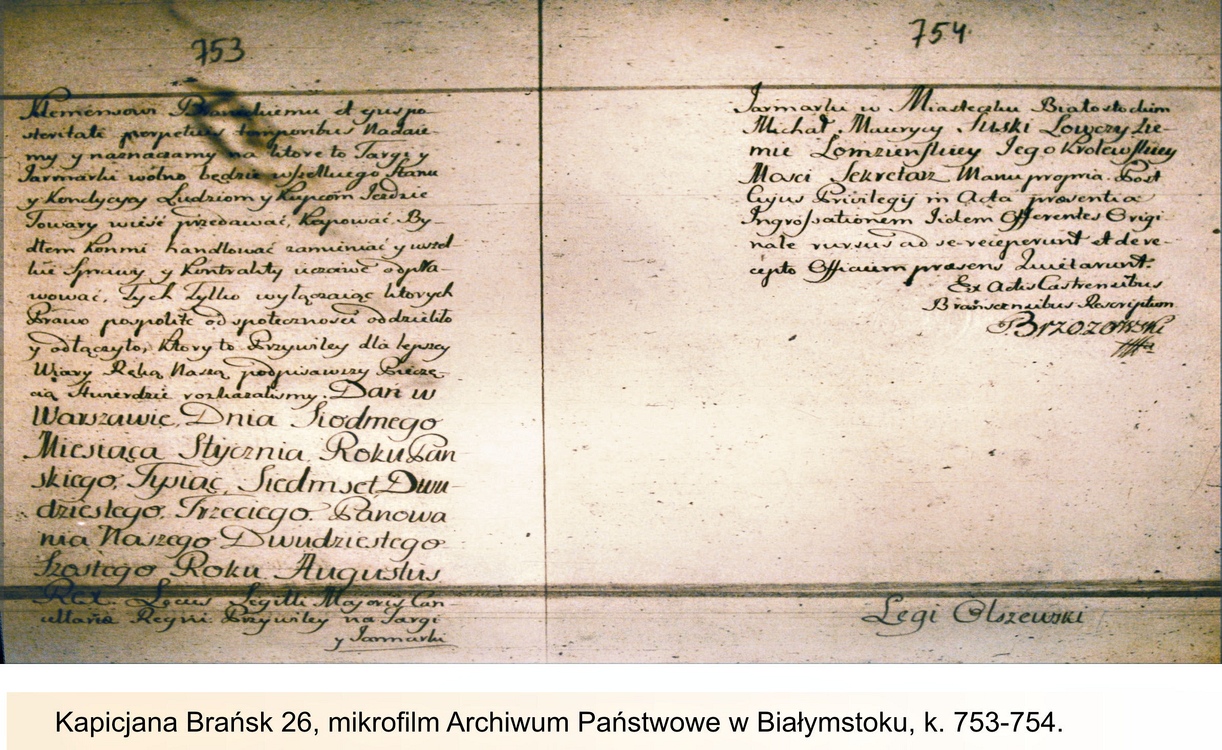 753
Klemensowi Branickiemu et ejus po-
steritate perpetuis temporibus Nadaie-
my y naznaczamy na ktore to Targi y
Jarmarki wolno będzie wszelkiego Stanu
y Kondycyi Ludziom y Kupcom Jezdzic
Towary wieść przedawać, kupować. By-
dłem końmi handlować zamieniać y wszel-
kie Sprawy y Kontrakty uczciwe odpra-
wować. Tych Tylko wyłączaiąc ktorych
Prawo pospolite od społeczności oddzieliło
y odłączyło, ktory to Przywiley dla lepszey
Wiary Ręką Naszą podpisawszy Pieczę-
cią stwierdzić rozkazalismy. Dań w
Warszawie, Dnia Siodmego
Miesiąca Stycznia Roku Pań-
skiego, Tysiąc, Siedmset Dwu-
dziestego, Trzeciego. Panowa
nia Naszego Dwudziestego
Szostego Roku Augustus
Rex. Locus Sigilli Majoris Can-
cellariæ Regni Przywiley na Targi
y Jarmarki
754
Jarmarki w Miasteczku Białostockim
Michał Maurycy Suski Łowczy Zie-
mie Łomzienskiey Jego Krolewskiey
Mosci Sekretarz Manu propria. Post
Cujus Privilegij in Acta præsentia
Ingrossationem Iidem Offerentes Origi
nale rursus ad se receperunt et de re-
cepto Officium præsens Quietarunt.
Ex Actis Castrensibus
Branscensibus Rescriptum
Brzozowski
Legi Olszewski
Kapicjana Brańsk 26, mikrofilm Archiwum Państwowe w Białymstoku, k. 753-754.